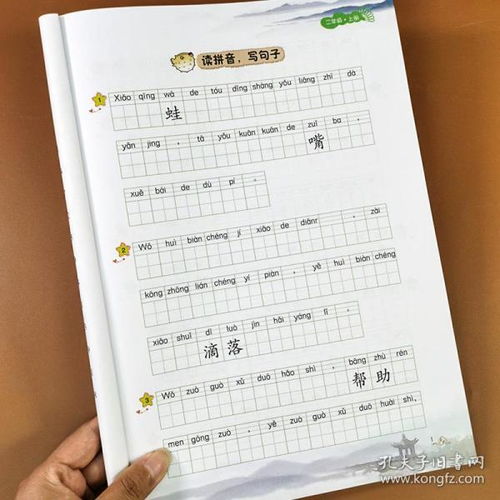 二年级·上册
读拼音，写句子
1
Xiǎo qīng wā de tóu dǐng shàng yǒu liǎng zhī dà
蛙
yǎn jing ， tā yǒu kuān kuān de zuǐ ba ，
嘴
xuě bái de dù pí 。
2
Wǒ huì biàn chéng jí xiǎo de diǎnr ， zài
kōng zhōng lián chéng yí piàn ， yě huì biàn chéng
xiǎo shuǐ dī luò jìn hǎi yáng lǐ 。
滴 落
3
Wǒ zuò guò xǔ duō hǎo shì ， bāng zhù rén
帮 助
men gōng zuò ， yě zuò guò xǔ duō huài shì，
孔夫子旧书网
www.kongfz.com